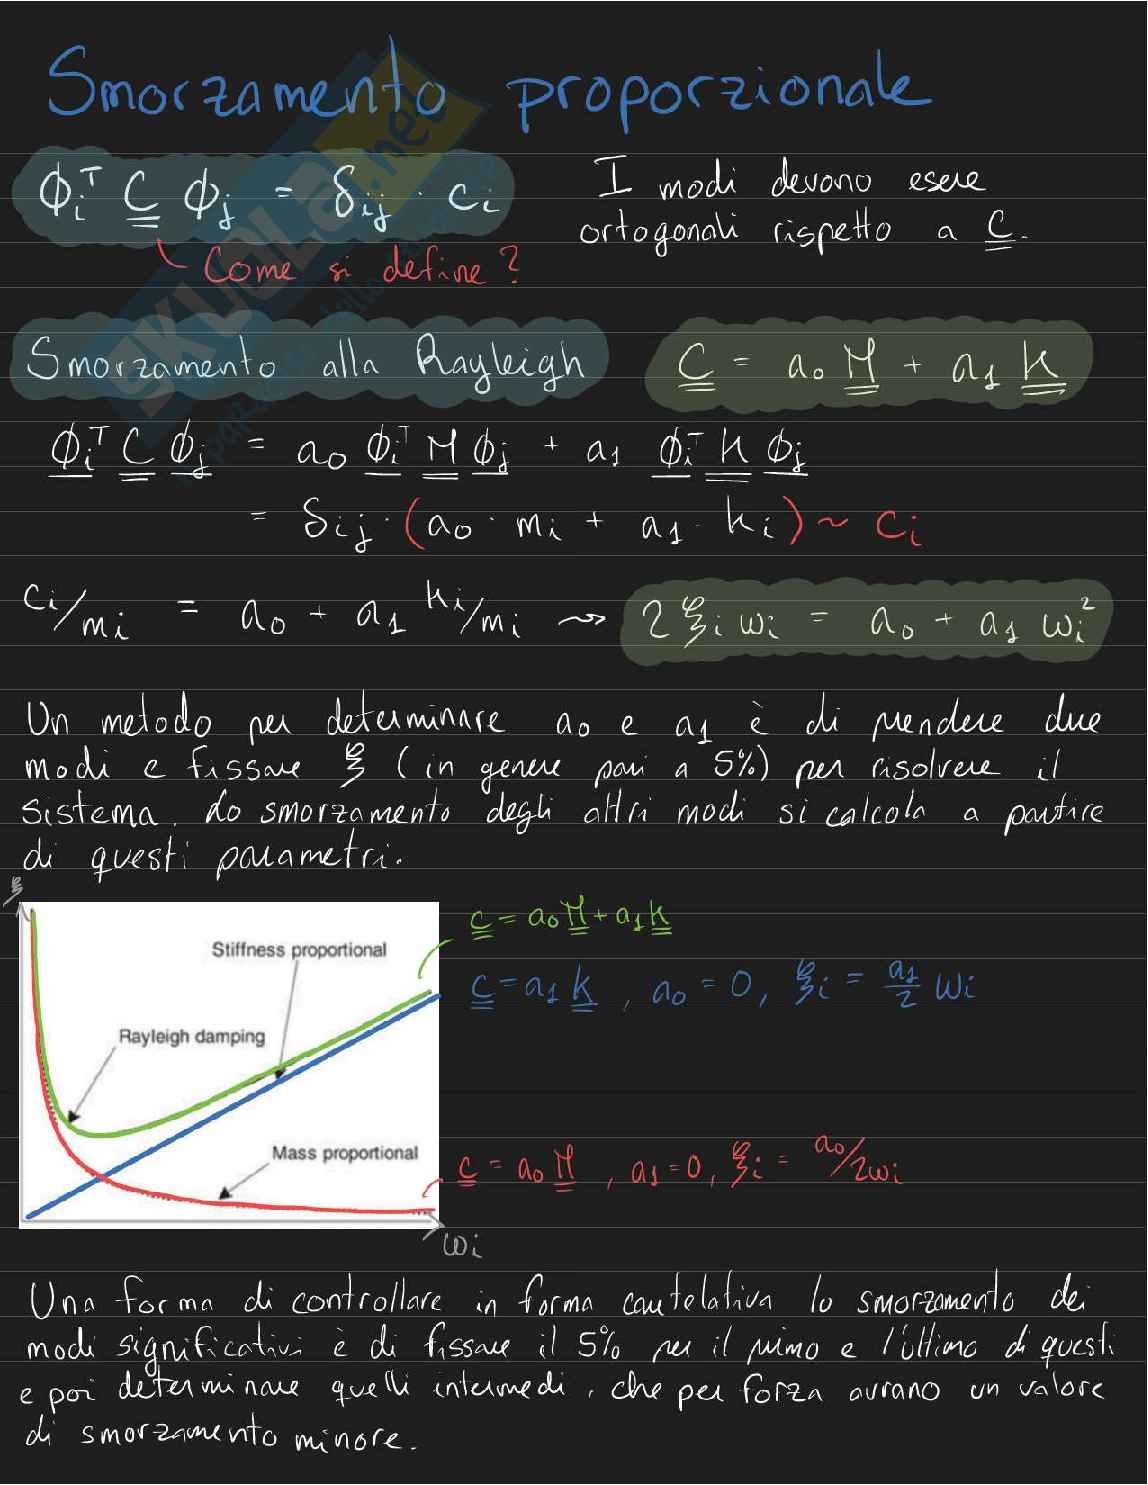 Smorzamento proporzionale
ϕᵢᵀ C ϕⱼ = δᵢⱼ · cᵢ
I modi devono esere
ortogonali rispetto a C.
Come si define?
Smorzamento alla Rayleigh
C = a₀ M + a₁ K
ϕᵢᵀ C ϕⱼ = a₀ ϕᵢᵀ M ϕⱼ + a₁ ϕᵢᵀ K ϕⱼ
= δᵢⱼ · (a₀ · mᵢ + a₁ · kᵢ) ~ cᵢ
cᵢ/mᵢ = a₀ + a₁ kᵢ/mᵢ ⇝ 2 ξᵢ ωᵢ = a₀ + a₁ ωᵢ²
Un metodo per determinare a₀ e a₁ è di prendere due
modi e fissare ξ (in genere pari a 5%) per risolvere il
sistema. Lo smorzamento degli altri modi si calcola a partire
di questi parametri.
ξ
C = a₀ M + a₁ K
Stiffness proportional
C = a₁ K , a₀ = 0, ξᵢ = a₁/2 ωᵢ
Rayleigh damping
Mass proportional
C = a₀ M , a₁ = 0, ξᵢ = a₀/2ωᵢ
ωᵢ
Una forma di controllare in forma cautelativa lo smorzamento dei
modi significativi è di fissare il 5% per il primo e l'ultimo di questi
e poi determinare quelli intermedi, che per forza avrano un valore
di smorzamento minore.
SKUOLA.net